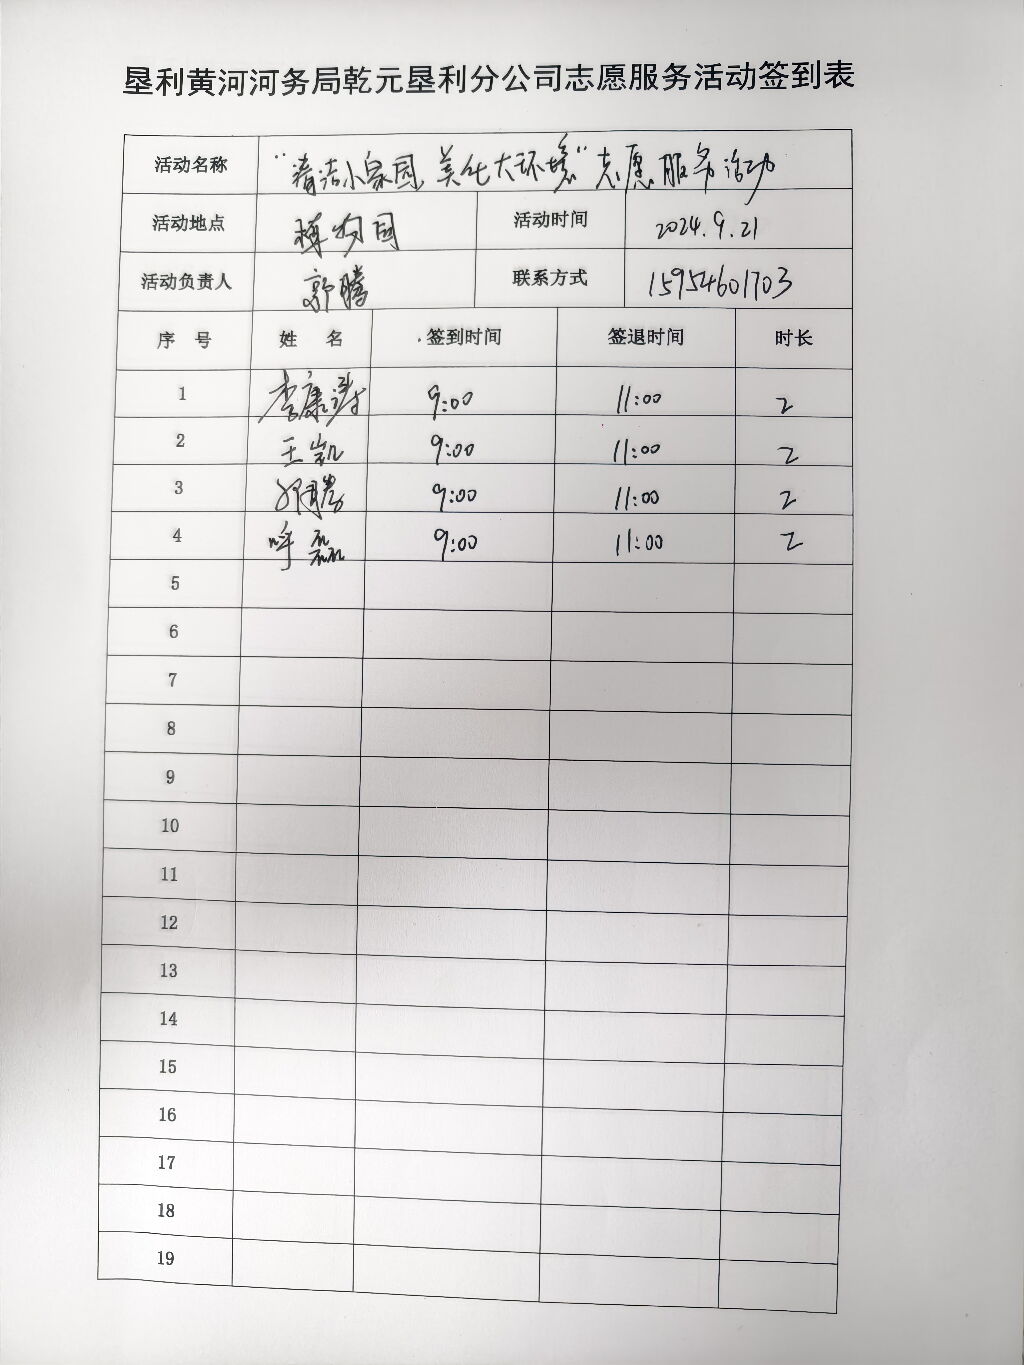 垦利黄河河务局乾元垦利分公司志愿服务活动签到表
活动名称 "清洁小家园,美化大环境"志愿服务活动
活动地点 植物园 活动时间 2024.9.21
活动负责人 郭腾 联系方式 15954601703
序 号 姓 名 签到时间 签退时间 时长
1 李康 9:00 11:00 2
2 王凯 9:00 11:00 2
3 郭腾 9:00 11:00 2
4 呼磊 9:00 11:00 2
5
6
7
8
9
10
11
12
13
14
15
16
17
18
19